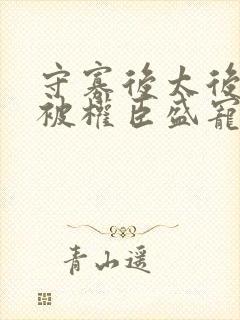 守寡後太後
被權臣盛寵
青山遥